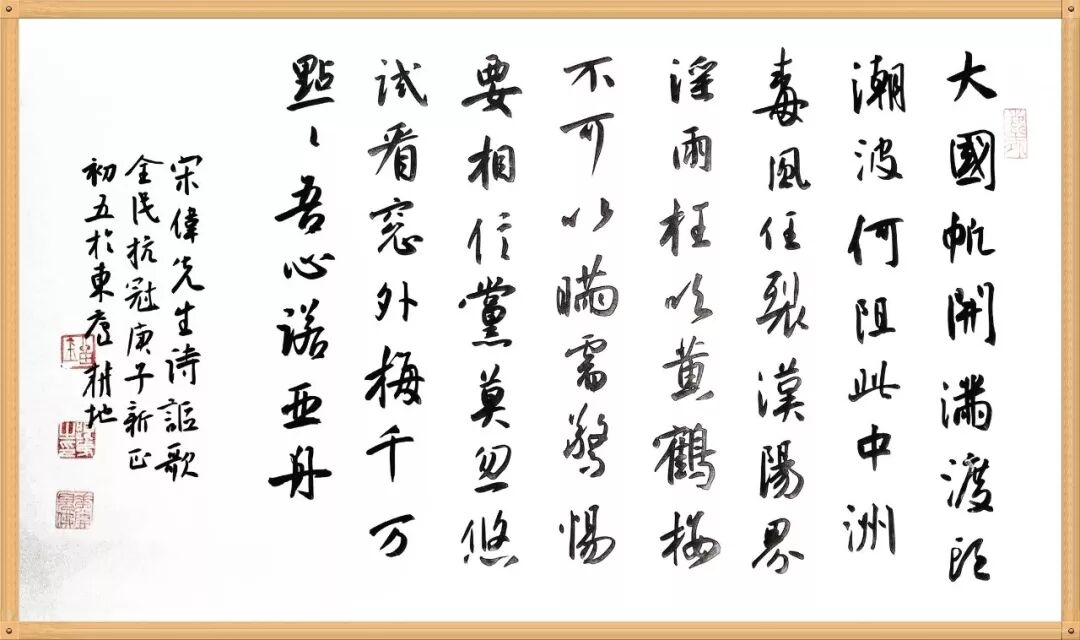 大國帆開滿渡頭
潮波何阻此中洲
毒風任裂漢陽界
淫雨枉吹黄鶴樓
不可以瞞需警惕
要相信黨莫忽悠
试看窓外梅千万
點〻吾心諾亞舟
宋偉先生詩謳歌
全民抗冠庚子新正
初五於東廬耕地